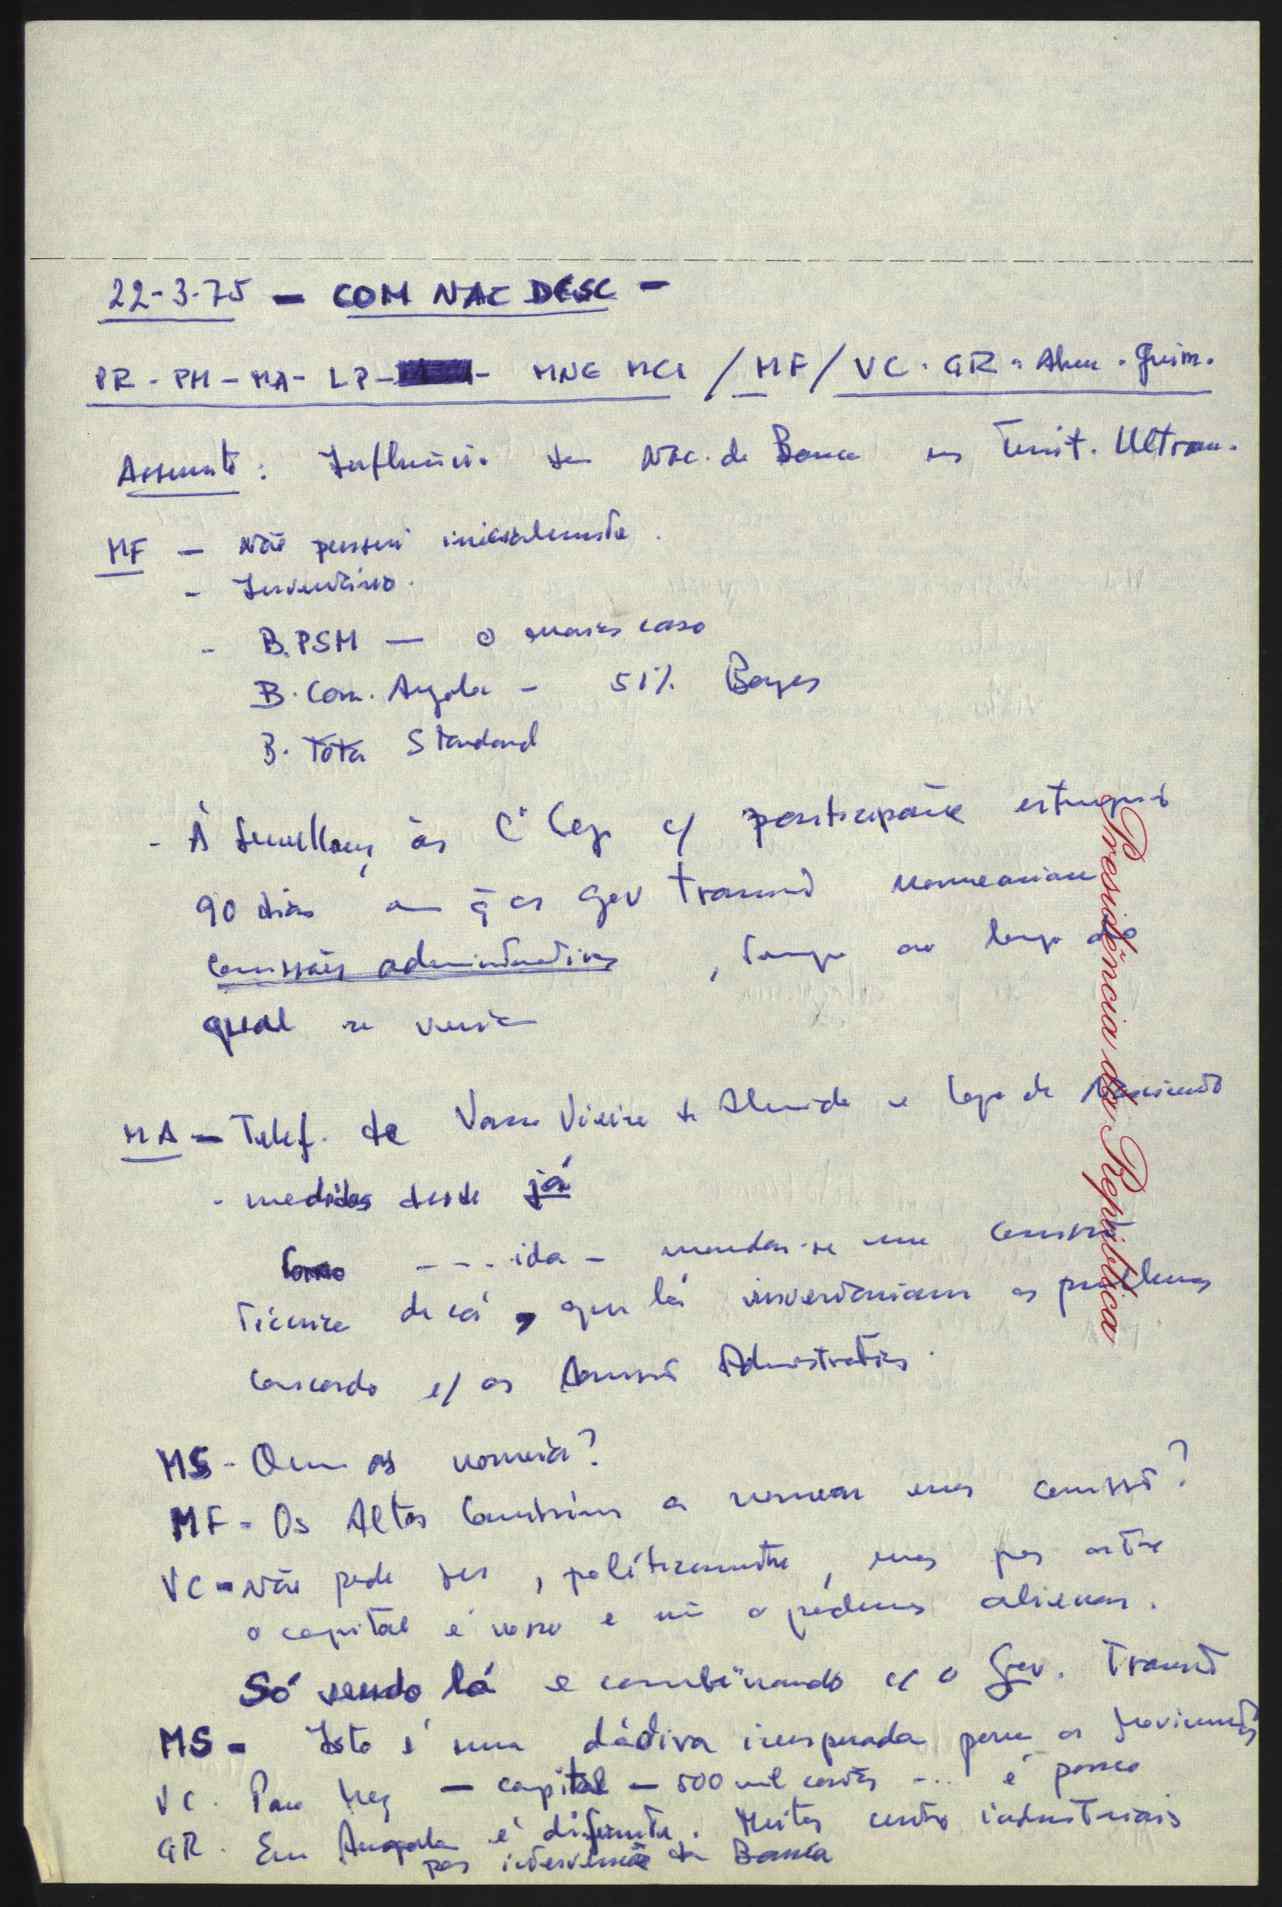 22-3-75 - COM NAC DESC -
PR - PM - MA - LP - - MNE MCI / MF / VC - GR - Abreu - Guim.
Assunto: Influência da Nac. da Banca nos Territ. Ultram.
MF - Não pensou inicialmente.
- Inventário.
- B.PSM - o maior caso
B. Com. Angola - 51% Borges
B. Totta Standard
- À semelhança às Cª Seg c/ participação estrangeira
90 dias em q̃ os Gov Transição nomeariam
Comissões administrativas, tempo ao longo do
qual se veria
MA - Telef. de Vasco Vieira de Almeida e Lopo do Nascimento
- medidas desde já
Como ---- ida - mandar-se uma comissão
Técnica de cá, que lá inventariam os problemas
Concordo c/ as Comissões Administrativas.
MS - Quem as nomeia?
MF - Os Altos Comissários a nomear essas comissões?
VC - Não pode ser, politicamente, mas por outro
o capital é nosso e não o podemos alienar.
Só vendo lá e combinando c/ o Gov. Transição
MS - Isto é uma dádiva inesperada para os Movimentos
VC. Para Moç - capital - 500 mil contos -... é pouco
GR. Em Angola é diferente. Muitos centros industriais
por intervenção da Banca
Presidência da República